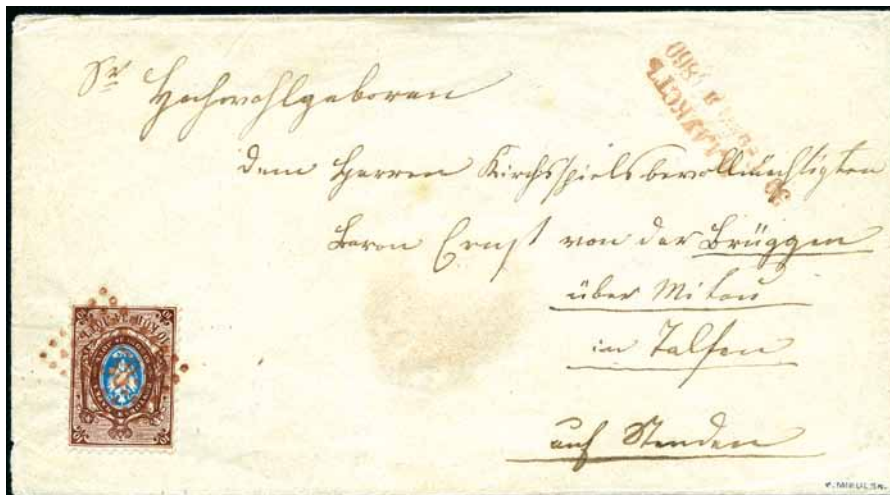 Sr Hochwohlgeboren
dem Herren Kirchspielsbevollmächtigten
Baron Ernst von der Brüggen
über Mitau
in Talsen
auf Stenden
1860